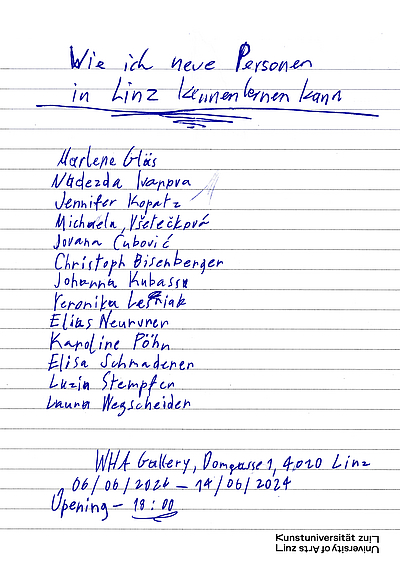 Wie ich neue Personen
in Linz kennenlernen kann
Marlene Gläs
Nadezda Ivanova
Jennifer Kopatz
Michaela Všetečková
Jovana Čubović
Christoph Bisenberger
Johanna Kubassa
Veronika Lesniak
Elias Neuruner
Karoline Pöhn
Elisa Schmaderer
Luzia Stempfer
Laura Wegscheider
WHA Gallery, Domgasse 1, 4020 Linz
06/06/2024 – 14/06/2024
Opening – 18:00
Kunstuniversität Linz
University of Arts Linz